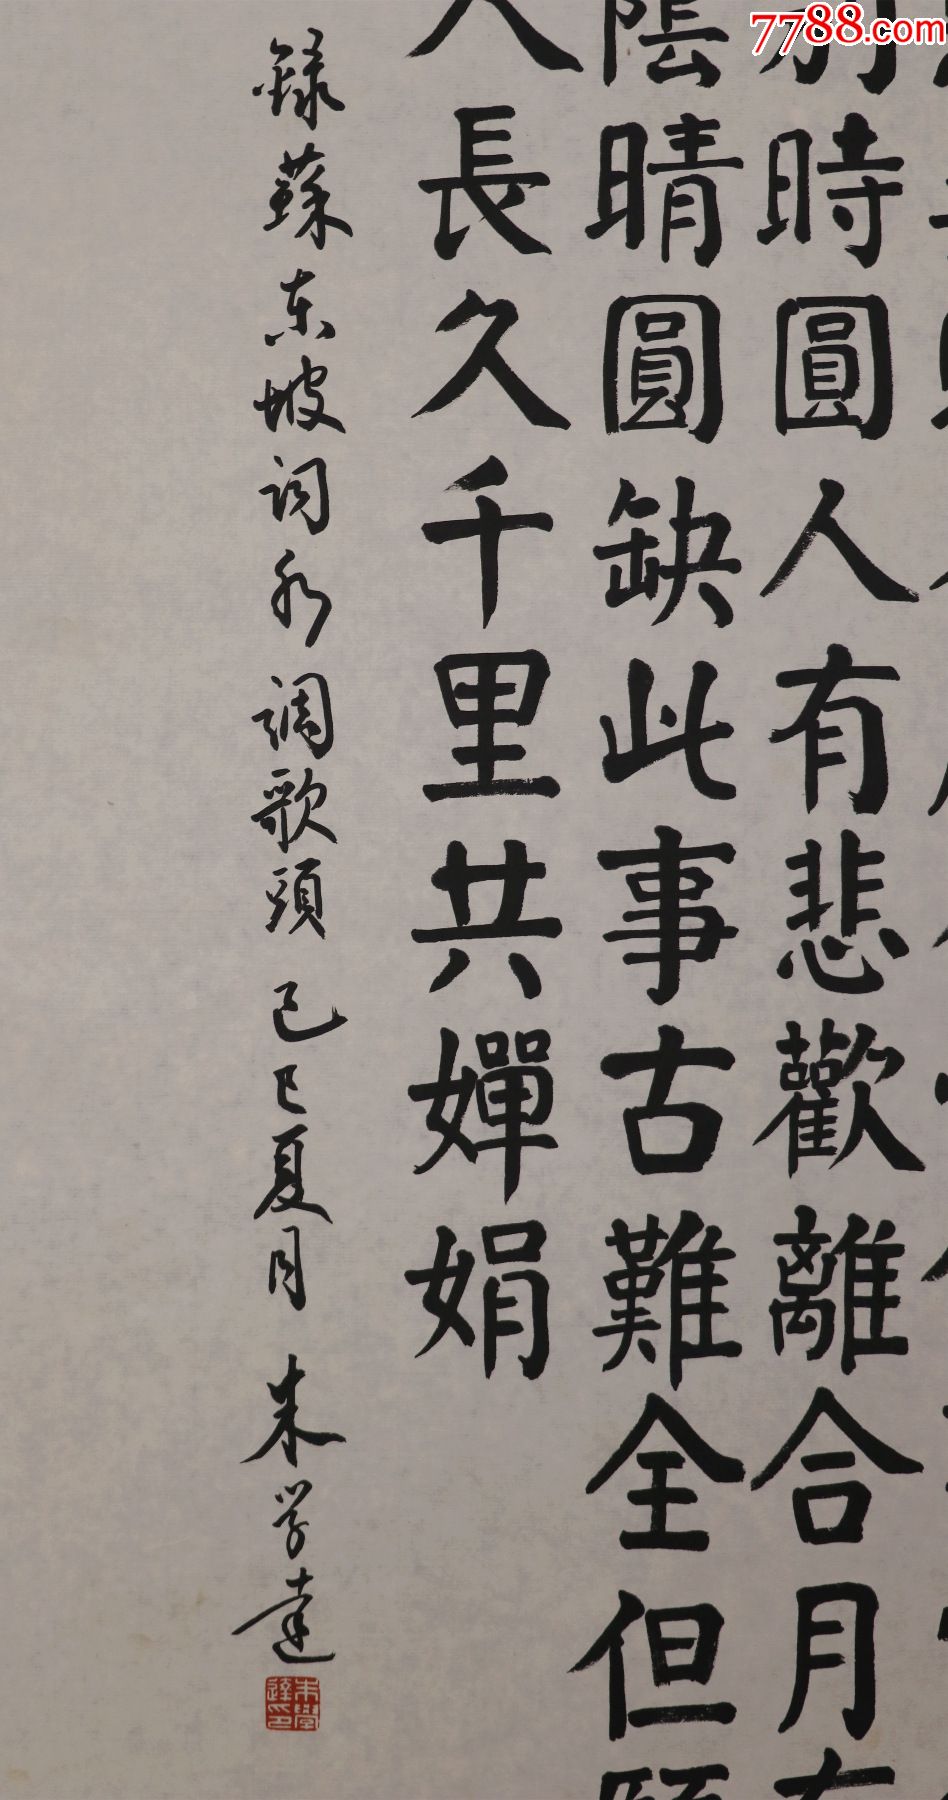 7788.com
別時圓人有悲歡離合月有
陰晴圓缺此事古難全但願
人長久千里共嬋娟
録蘇東坡詞水調歌頭 己巳夏月 朱学達
朱學達印